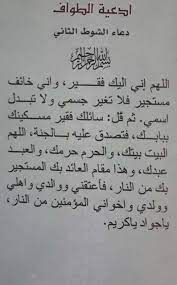 ادعية الطواف
دعاء الشوط الثاني
بسم الله الرحمن الرحيم
اللهم إني اليك فقير، واني خائف
مستجير فلا تغير جسمي ولا تبدل
اسمي. ثم قل: سائلك فقير مسكينك
ببابك، فتصدق عليه بالجنة، اللهم
البيت بيتك، والحرم حرمك، والعبد
عبدك، وهذا مقام العائذ بك المستجير
بك من النار، فأعتقني ووالدي واهلي
وولدي واخواني المؤمنين من النار،
ياجواد ياكريم.